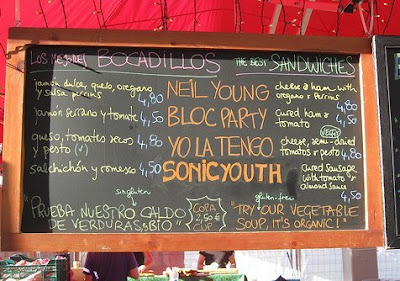 LOS MEJORES BOCADILLOS
THE BEST SANDWICHES
Jamón dulce, queso, orégano
y salsa perrins 4,80
Jamón serrano y tomate
4,50
queso, tomates secos
y pesto (v) 4,80
Salchichón y romesco
4,50
NEIL YOUNG
BLOC PARTY
YO LA TENGO
SONIC YOUTH
cheese & ham with
oregano & Perrins 4,80
Cured ham &
tomato 4,50
cheese, semi-dried
tomatos & pesto 4,80
cured sausage
with tomato &
almond sauce 4,50
sin gluten
"PRUEBA NUESTRO CALDO
DE VERDURAS, ES BIO"
COPA
2,50€
CUP
gluten-free
"TRY OUR VEGETABLE
SOUP, IT'S ORGANIC!"